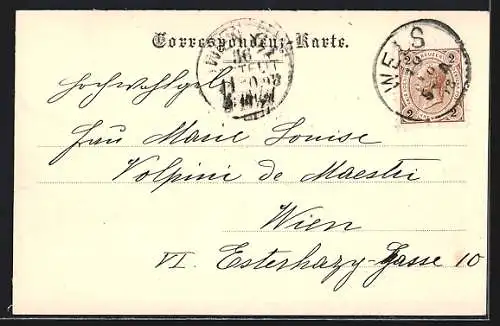 Correspondenz-Karte.
WELS
2 2
2 2
Hochwohlgeb.
Frau Marie Louise
Volpini de Maestri
Wien
VI. Esterhazy-Gasse 10